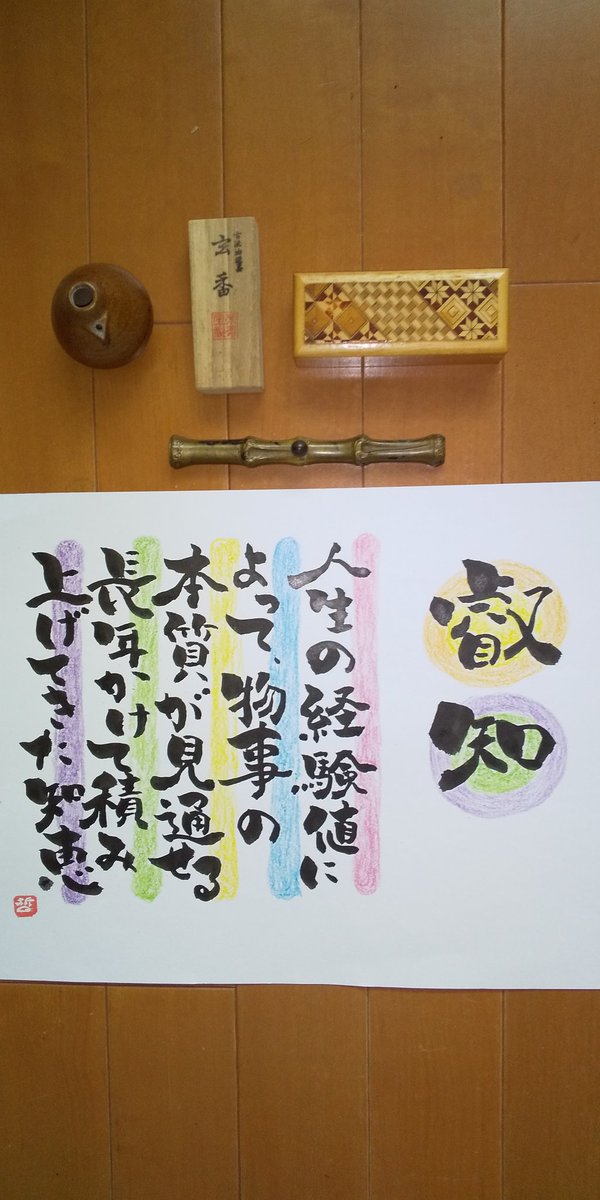 玄番
叡知
人生の経験値に
よって、物事の
本質が見通せる
長年かけて積み
上げてきた知恵
哲